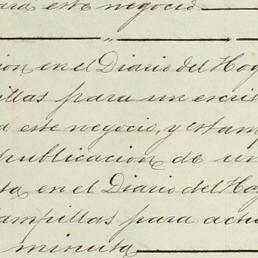 para este negocio
ion en el Diario del Hog
pillas para un escri
a este negocio, y estam
publicacion de un
ta en el Diario del Hog
ampillas para actu
minuta